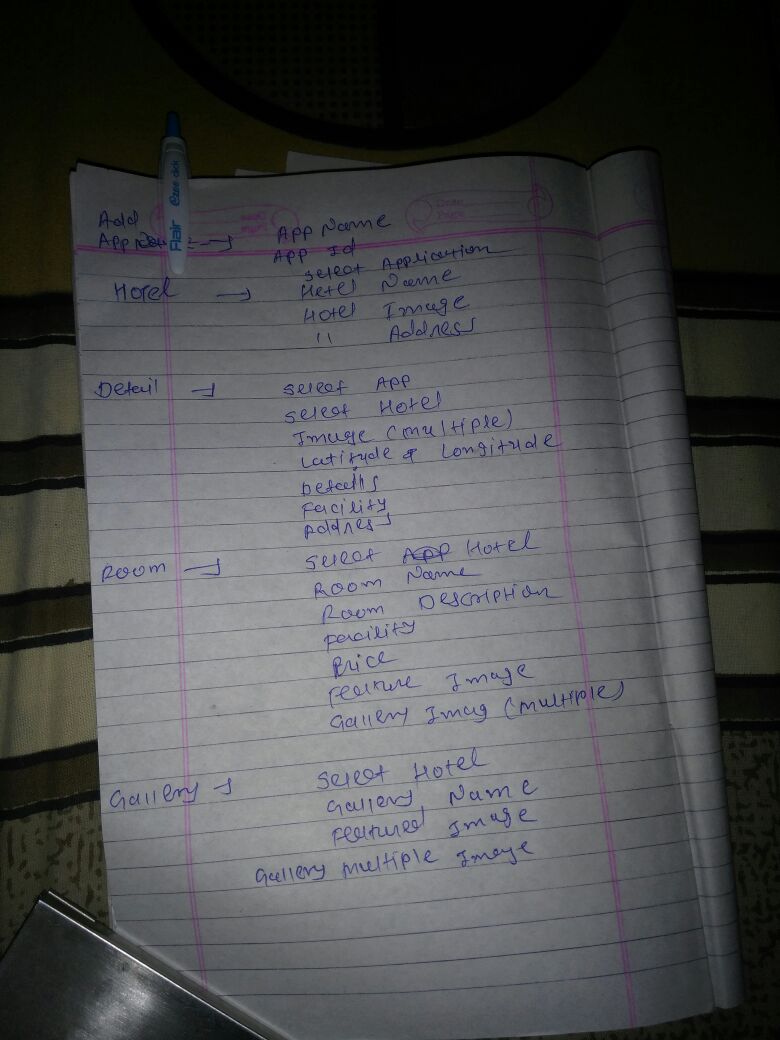 Flair ezee click
Add
App → App Name
App Id
Select Application
Hotel → Hotel Name
Hotel Image
" Address
Detail → Select App
Select Hotel
Image (multiple)
Latitude & Longitude
Details
Facility
Address
Room → Select Hotel
Room Name
Room Description
Facility
Price
Feature Image
Gallery Imag (multiple)
Gallery → Select Hotel
Gallery Name
Featured Image
Gallery multiple Image